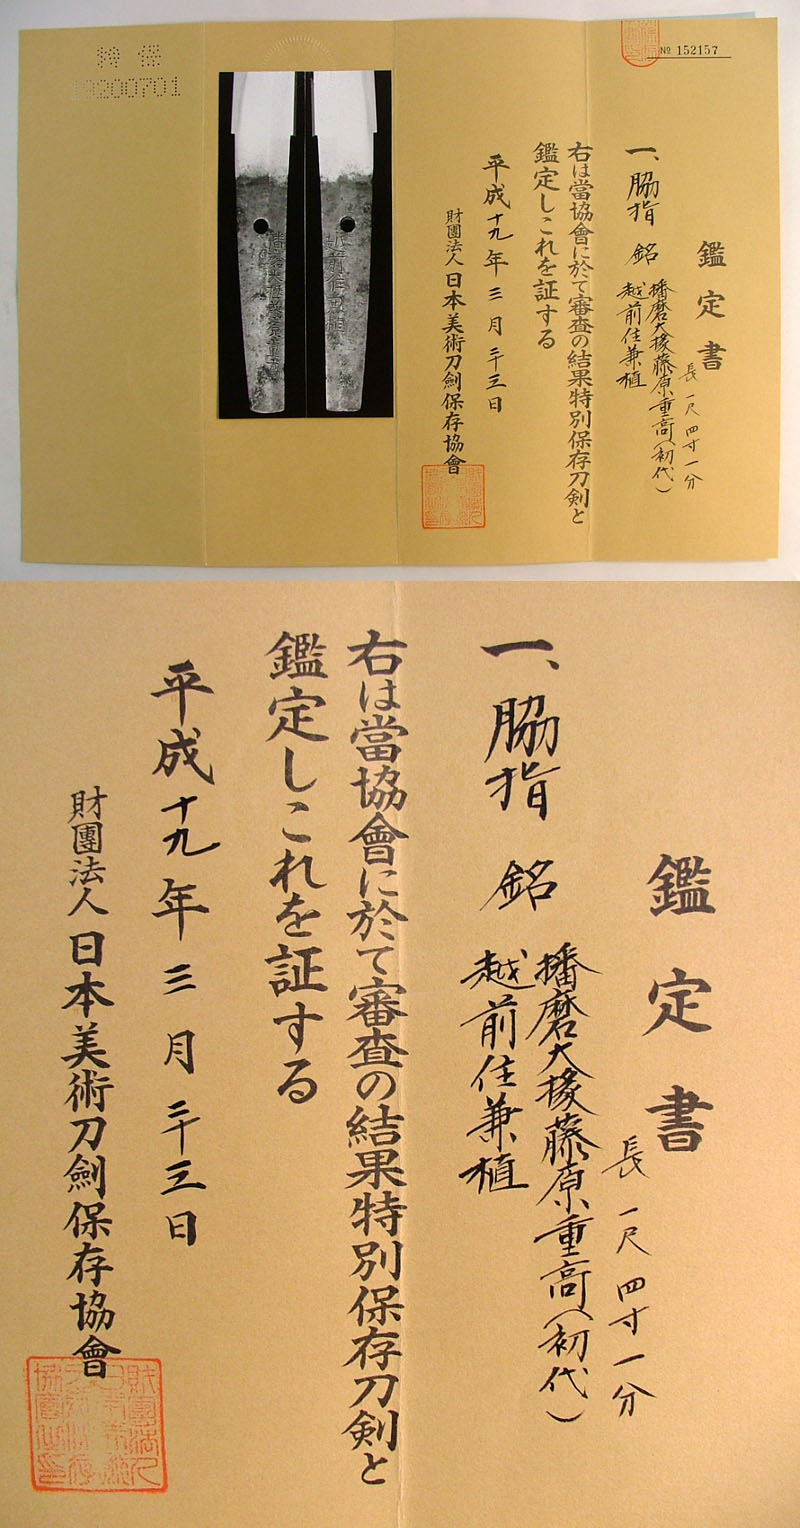 特保
200701
№ 152157
鑑定書
長一尺四寸一分
一、脇指 銘 播磨大掾藤原重高(初代)
越前住兼植
右は當協會に於て審査の結果特別保存刀剣と
鑑定しこれを証する
平成十九年三月二十三日
財團法人日本美術刀劍保存協會
越前住兼植
播磨大掾藤原重高
鑑定書
長一尺四寸一分
一、脇指 銘 播磨大掾藤原重高(初代)
越前住兼植
右は當協會に於て審査の結果特別保存刀剣と
鑑定しこれを証する
平成十九年三月二十三日
財團法人日本美術刀劍保存協會